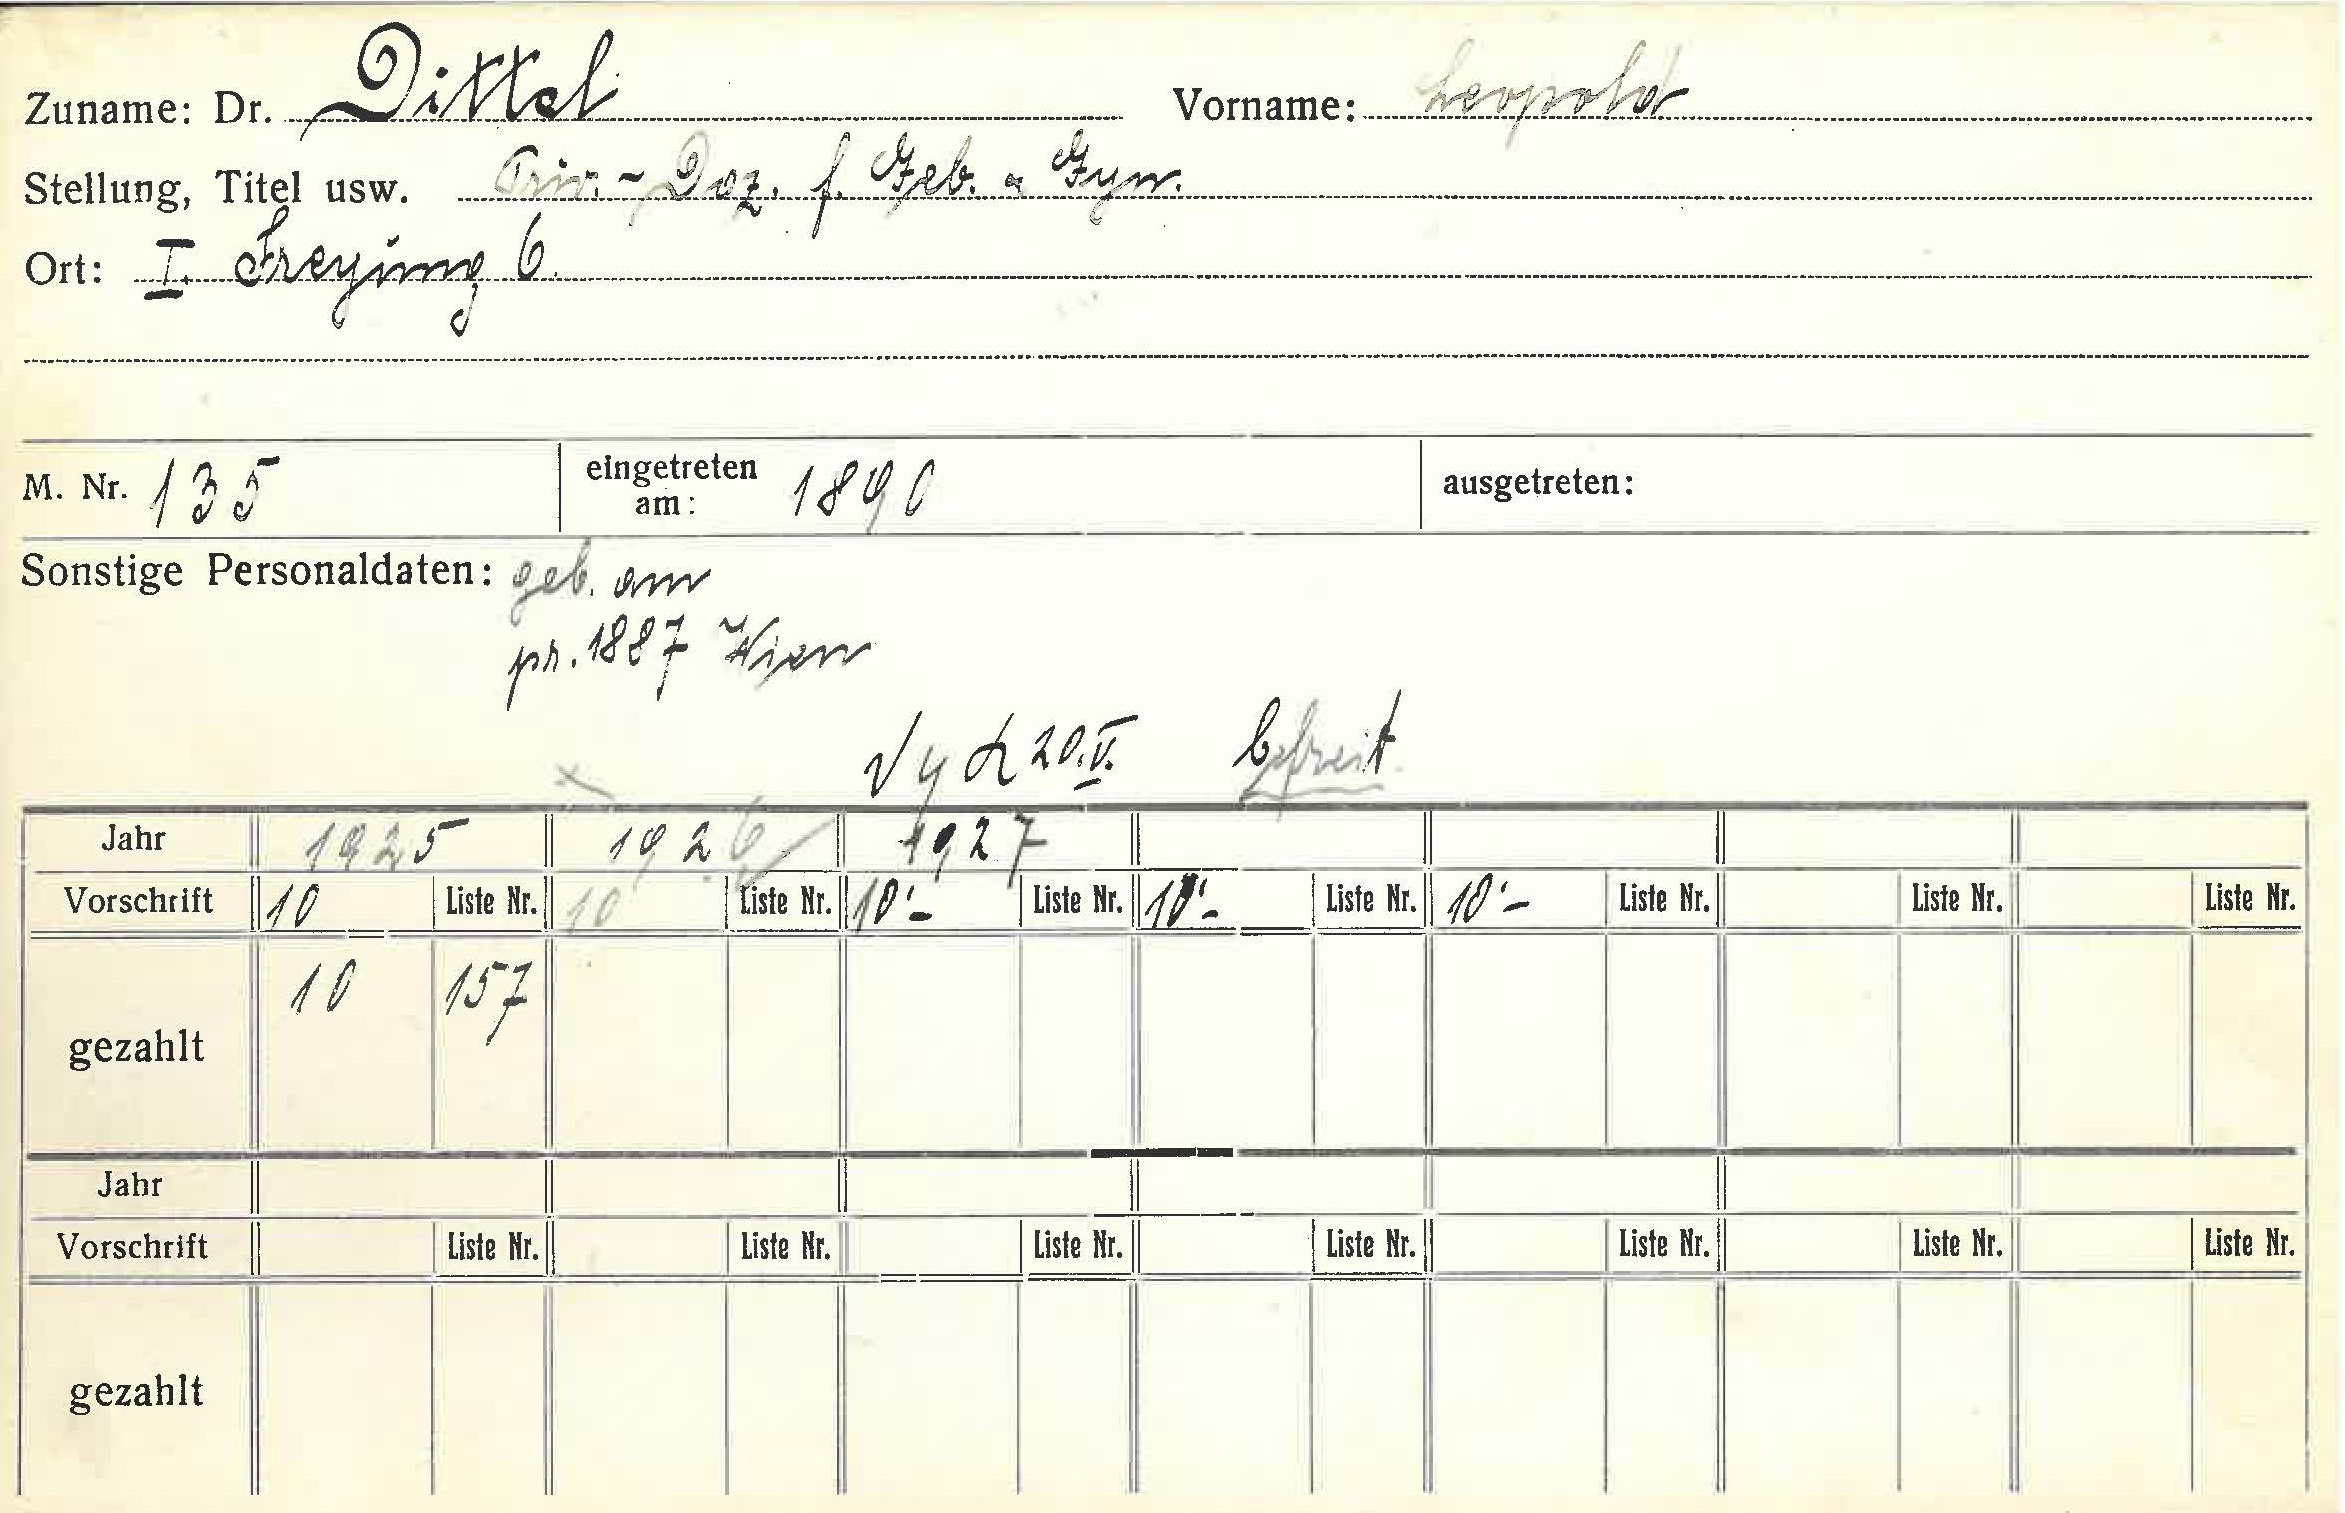 Zuname: Dr. Dittel Vorname: Leopold
Stellung, Titel usw. Priv.-Doz. f. Geb. u Gyn.
Ort: I. Freyung 6.
M. Nr. 135 eingetreten am: 1890 ausgetreten:
Sonstige Personaldaten: geb. am
pr. 1887 Wien
20.V. befreit
Jahr 1925 1926 1927
Vorschrift 10 Liste Nr. 10 Liste Nr. 10'- Liste Nr. 10'- Liste Nr. 10'- Liste Nr. Liste Nr. Liste Nr.
gezahlt 10 157
Jahr
Vorschrift Liste Nr. Liste Nr. Liste Nr. Liste Nr. Liste Nr. Liste Nr. Liste Nr.
gezahlt